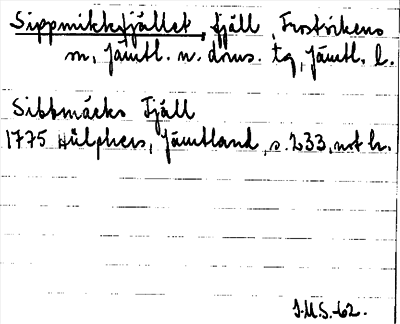 Sippmikkfjället, fjäll, Frostvikens
m, Jämtl. n. doms. tg, Jämtl. l.
Sibbmäcks Fjäll
1775 Hülphers, Jämtland, s. 233, not h.
J.M.S.-62.